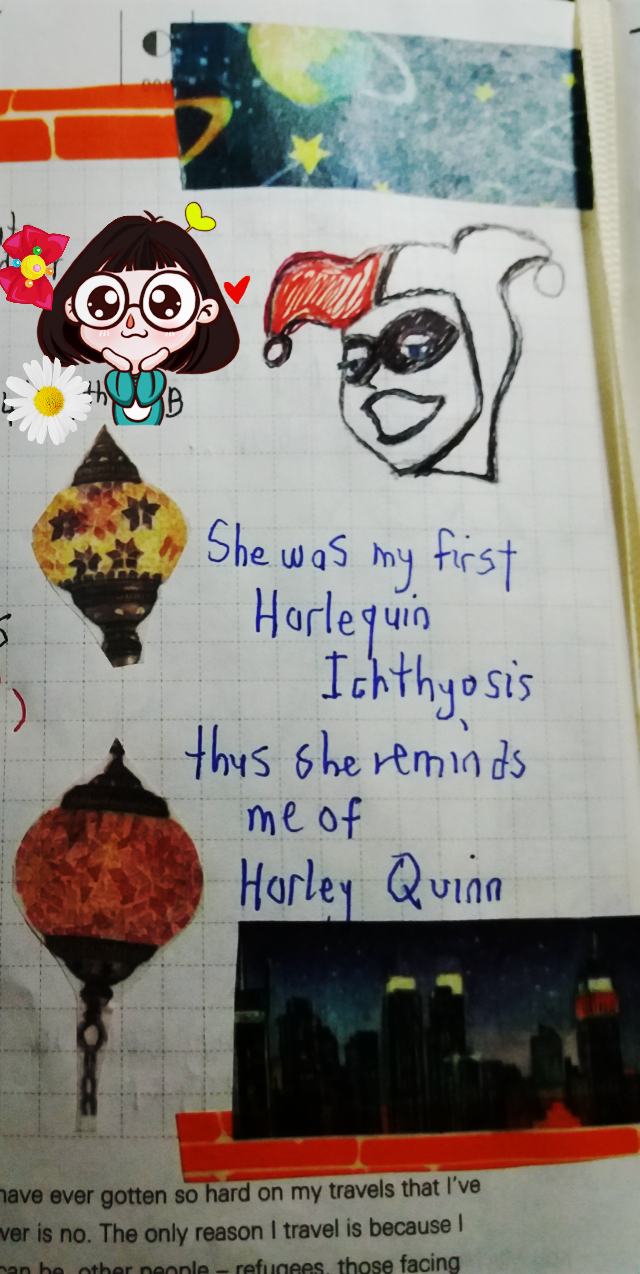 th B
She was my first
Harlequin
Ichthyosis
thus she reminds
me of
Harley Quinn
have ever gotten so hard on my travels that I've
ver is no. The only reason I travel is because I
can be, other people – refugees, those facing